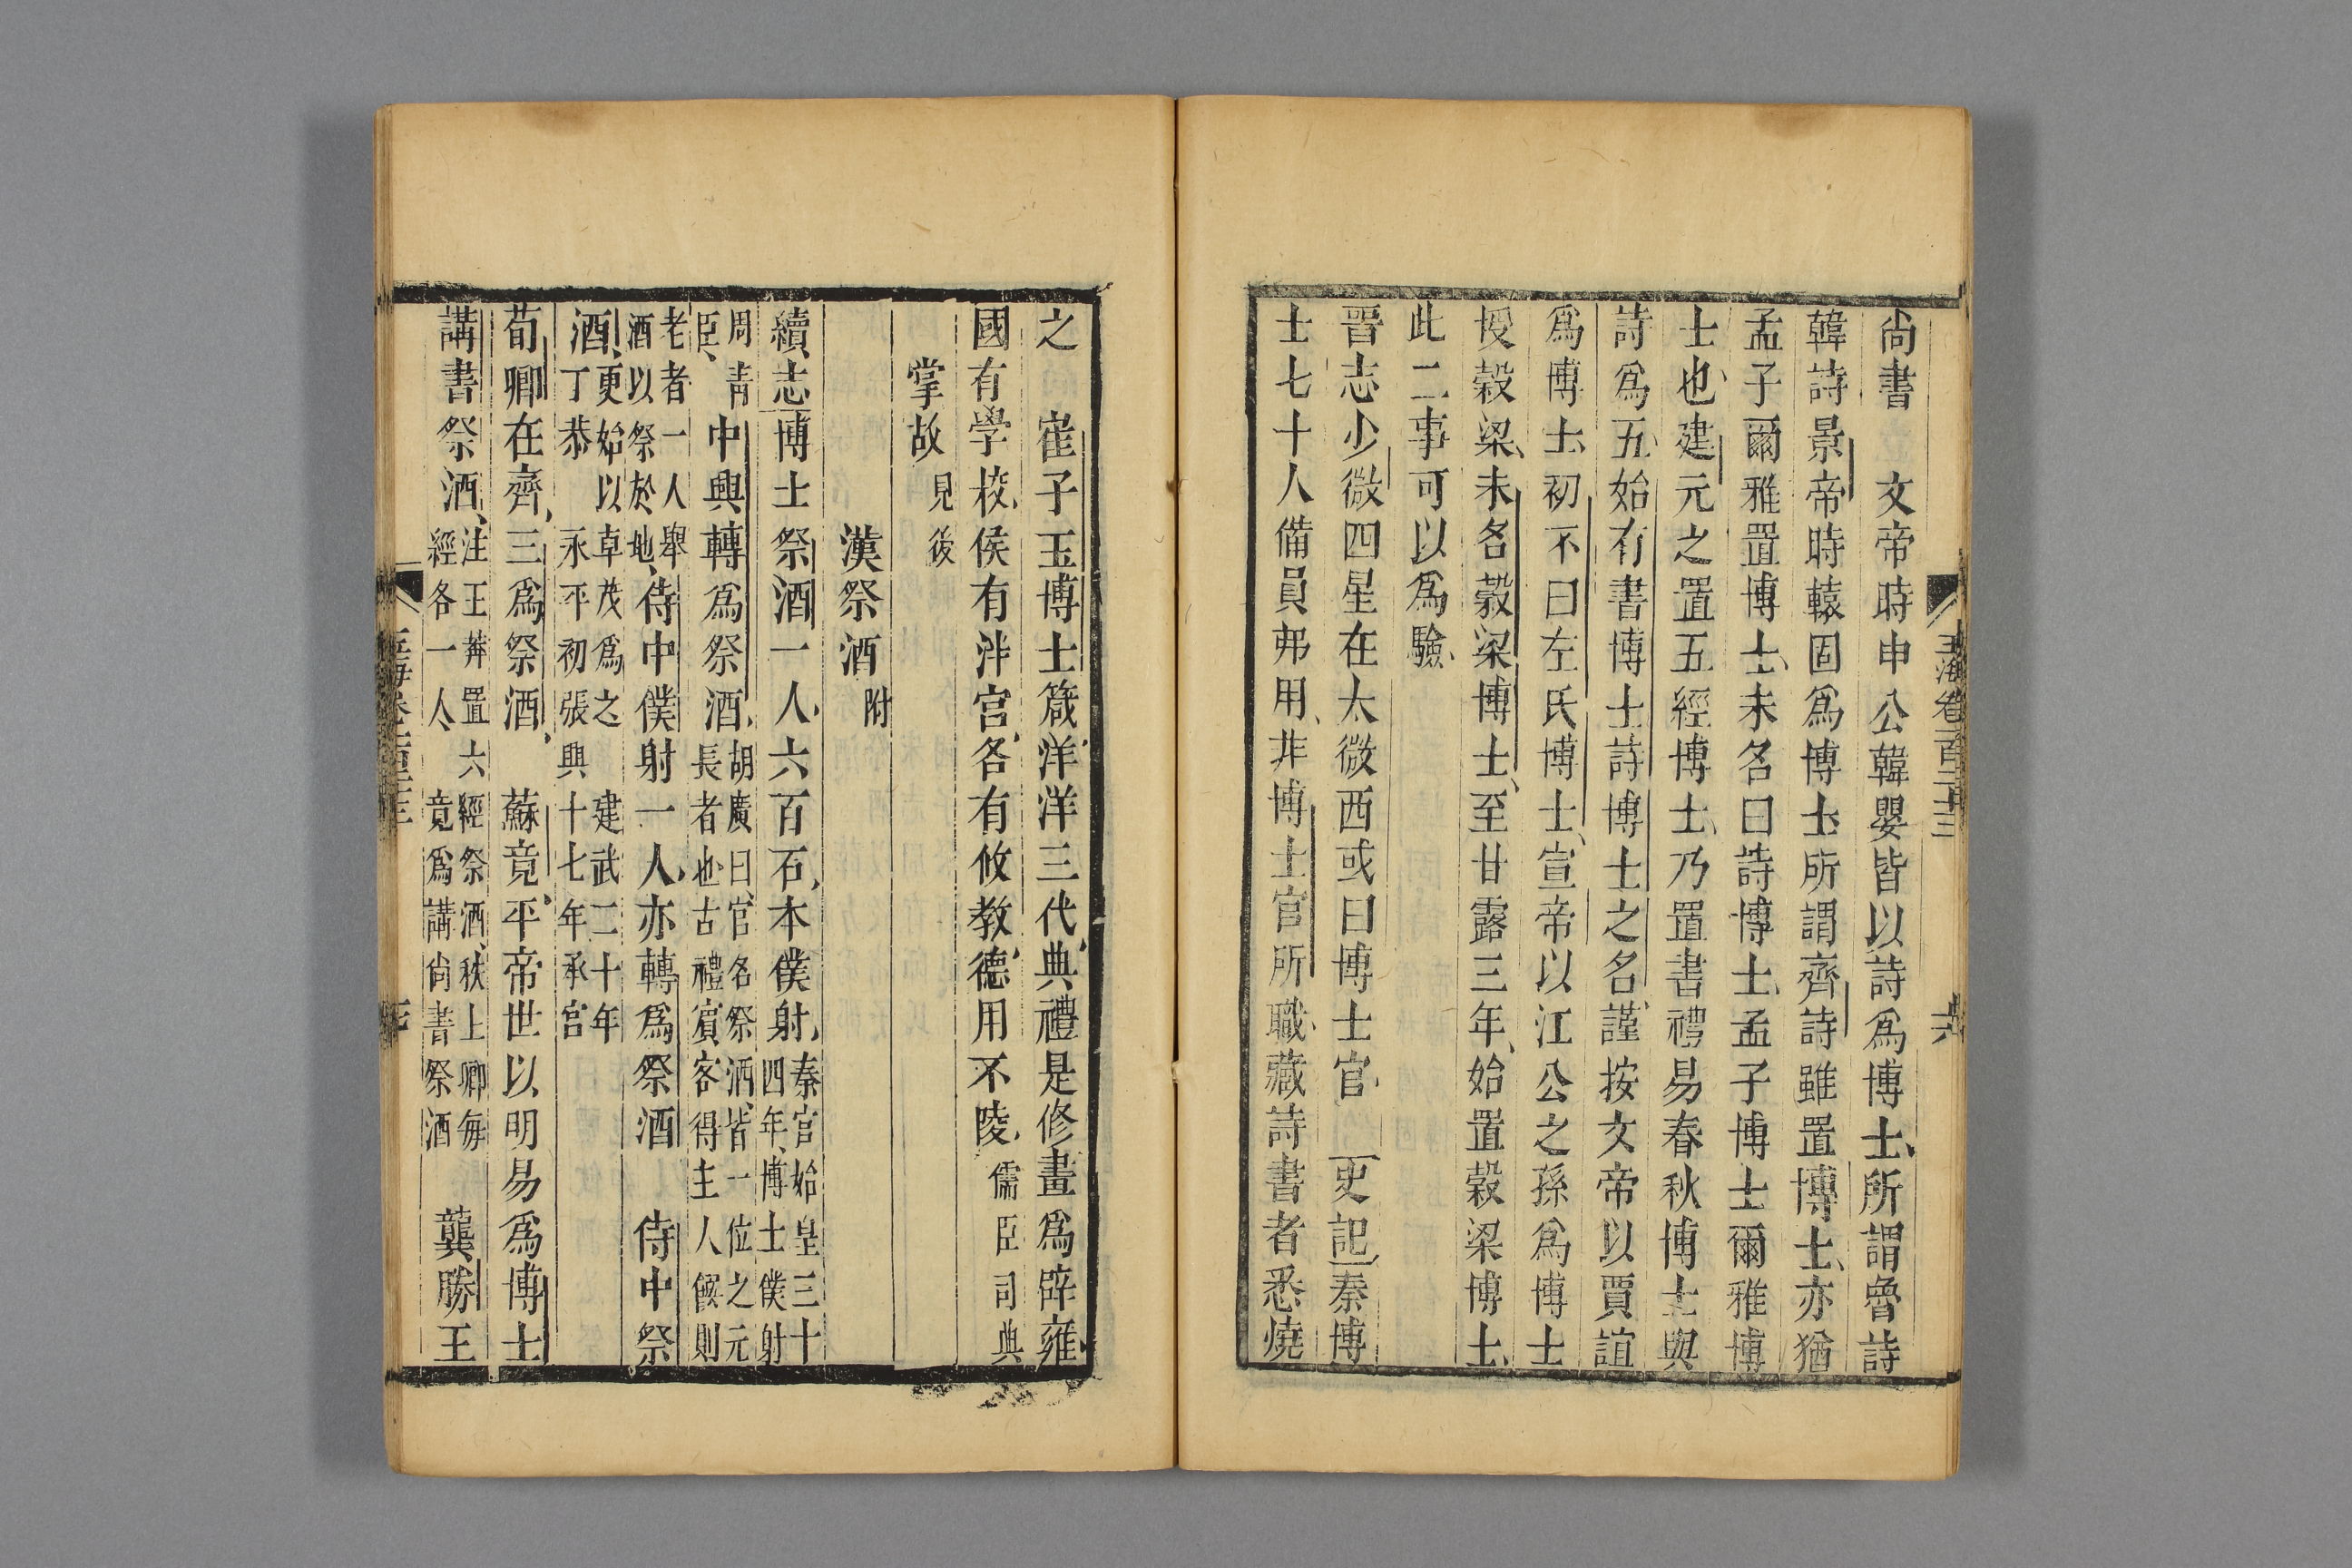 尚書　文帝時申公韓嬰皆以詩爲博士所謂魯詩
韓詩景帝時轅固爲博士所謂齊詩雖置博士亦猶
孟子爾雅置博士未名曰詩博士孟子博士爾雅博
士也建元之置五經博士乃置書禮易春秋博士與
詩爲五始有書博士詩博士之名謹按文帝以賈誼
爲博士初不曰左氏博士宣帝以江公之孫爲博士
授穀梁未名穀梁博士至甘露三年始置穀梁博士
此二事可以爲驗
晉志少微四星在太微西或曰博士官　史記秦博
士七十人備員弗用非博士官所職藏詩書者悉燒
之　崔子玉博士箴洋洋三代典禮是修畫爲辟雍
國有學校侯有泮宮各有攸教德用不陵儒臣司典
掌故見後
漢祭酒附
續志博士祭酒一人六百石本僕射秦官始皇三十
四年博士僕射
周青
臣中興轉爲祭酒胡廣曰官名祭酒皆一位之元
長者也古禮賓客得主人饌則
老者一人舉
酒以祭於地侍中僕射一人亦轉爲祭酒　侍中祭
酒更始以卓茂爲之　建武二十年
丁恭　永平初張興　十七年承宮
荀卿在齊三爲祭酒　蘇竟平帝世以明易爲博士
講書祭酒注王莽置六經祭酒秩上卿每
經各一人　竟爲講尚書祭酒　龔勝王
玉海卷一百二十三